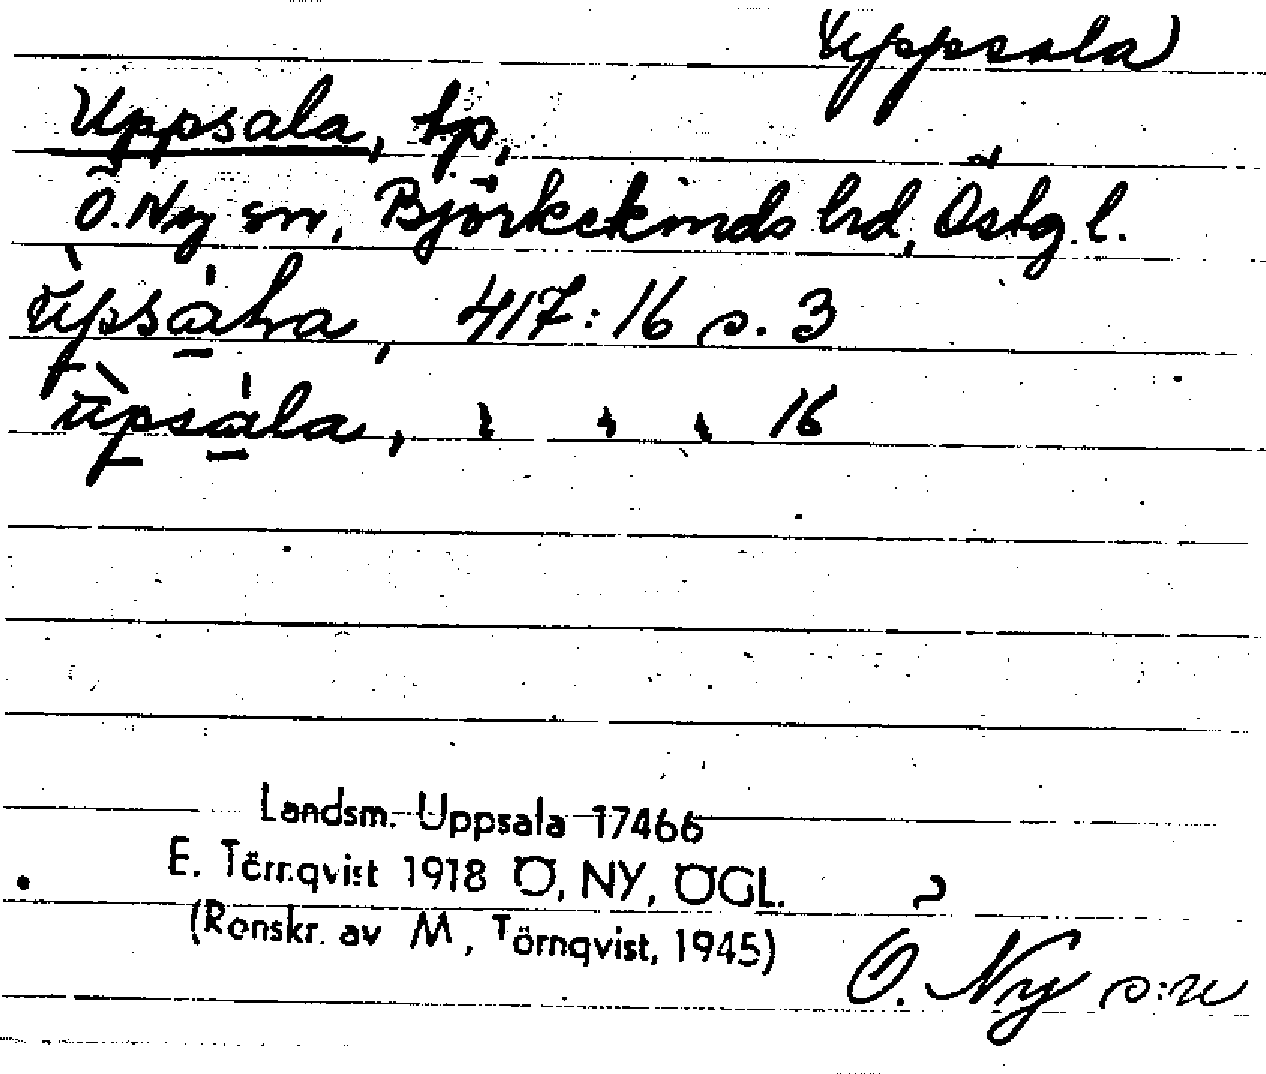 Uppsala)
Uppsala, tp,
Ö. Ny sn, Björkekinds hd, Östg. l.
ùpsàla, 417:16 s. 3
ùpsàla, " " " 16
Landsm. Uppsala 17466
E. Törnqvist 1918 Ö, NY, ÖGL.
(Renskr. av M, Törnqvist, 1945)
Ö. Ny s:n